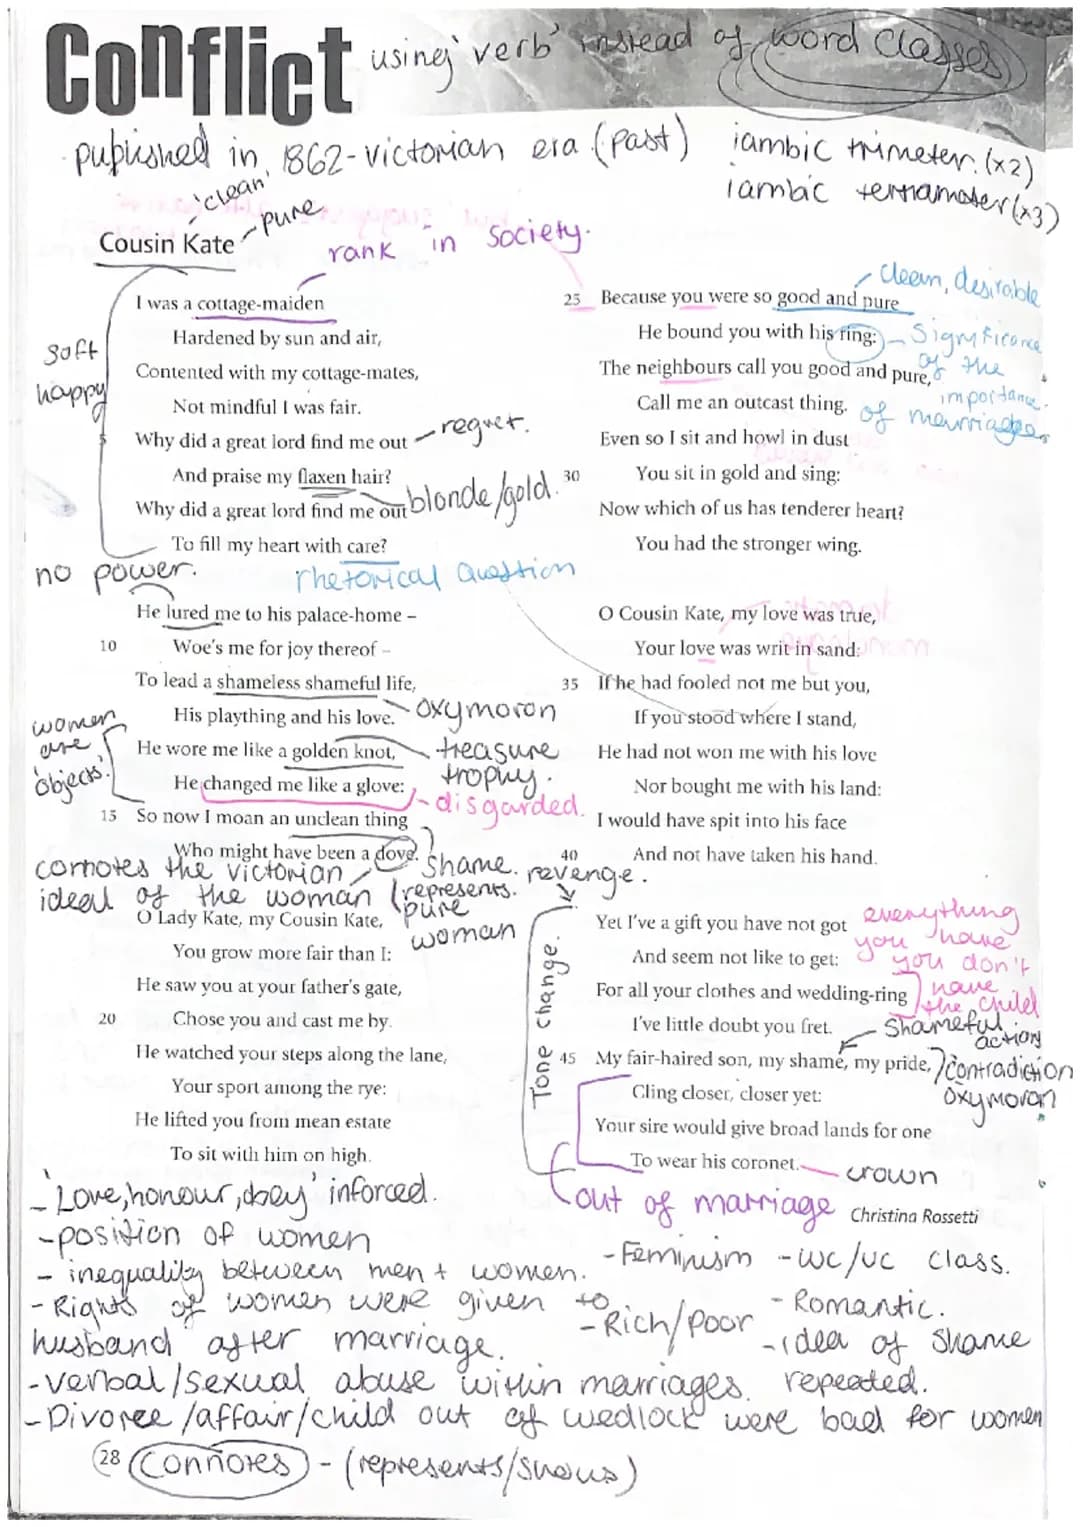 Conflict
using 'verb' instead of word classes
published in 1862 - victorian era (past)
iambic trimeter. (x2)
iambic tetramater (x3)
'clean'
- pure
Cousin Kate
rank in society.
I was a cottage-maiden
Hardened by sun and air,
Contented with my cottage-mates,
Not mindful I was fair.
Why did a great lord find me out
And praise my flaxen hair?
Why did a great lord find me out
To fill my heart with care?
soft
happy
- regret.
blonde/gold.
no power.
rhetorical question
He lured me to his palace-home –
10 Woe's me for joy thereof –
To lead a shameless shameful life,
His plaything and his love.
He wore me like a golden knot,
He changed me like a glove:
15 So now I moan an unclean thing
Who might have been a dove.
women
are
'objects'.
- oxymoron
treasure
trophy.
- disgarded.
connotes the victorian
ideal of the woman
shame.
(represents.
pure
woman
O Lady Kate, my Cousin Kate,
You grow more fair than I:
He saw you at your father's gate,
20 Chose you and cast me by.
He watched your steps along the lane,
Your sport among the rye:
He lifted you from mean estate
To sit with him on high.
clean, desirable
25 Because you were so good and pure
He bound you with his ring:
The neighbours call you good and pure,
Call me an outcast thing.
Even so I sit and howl in dust
30 You sit in gold and sing:
Now which of us has tenderer heart?
You had the stronger wing.
- Significance
of the
importance.
of marriages
O Cousin Kate, my love was true,
Your love was writ in sand:
35 If he had fooled not me but you,
If you stood where I stand,
He had not won me with his love
Nor bought me with his land:
I would have spit into his face
40 And not have taken his hand.
revenge.
Tone change.
Yet I've a gift you have not got
And seem not like to get:
For all your clothes and wedding-ring
I've little doubt you fret.
45 My fair-haired son, my shame, my pride,
Cling closer, closer yet:
Your sire would give broad lands for one
To wear his coronet.
everything
you have
you don't
have
the child
shameful
action
contradiction
oxymoron
crown
out of marriage
Christina Rossetti
- 'Love, honour, obey' inforced.
- position of women
- inequality between men + women.
- Rights of women were given to
husband after marriage.
- verbal/sexual abuse within marriages. repeated.
- Divorce/affair/child out of wedlock were bad for women
- Feminism - WC/UC class.
- Rich/Poor - Romantic.
- idea of shame
28 Connotes - (represents/shows)